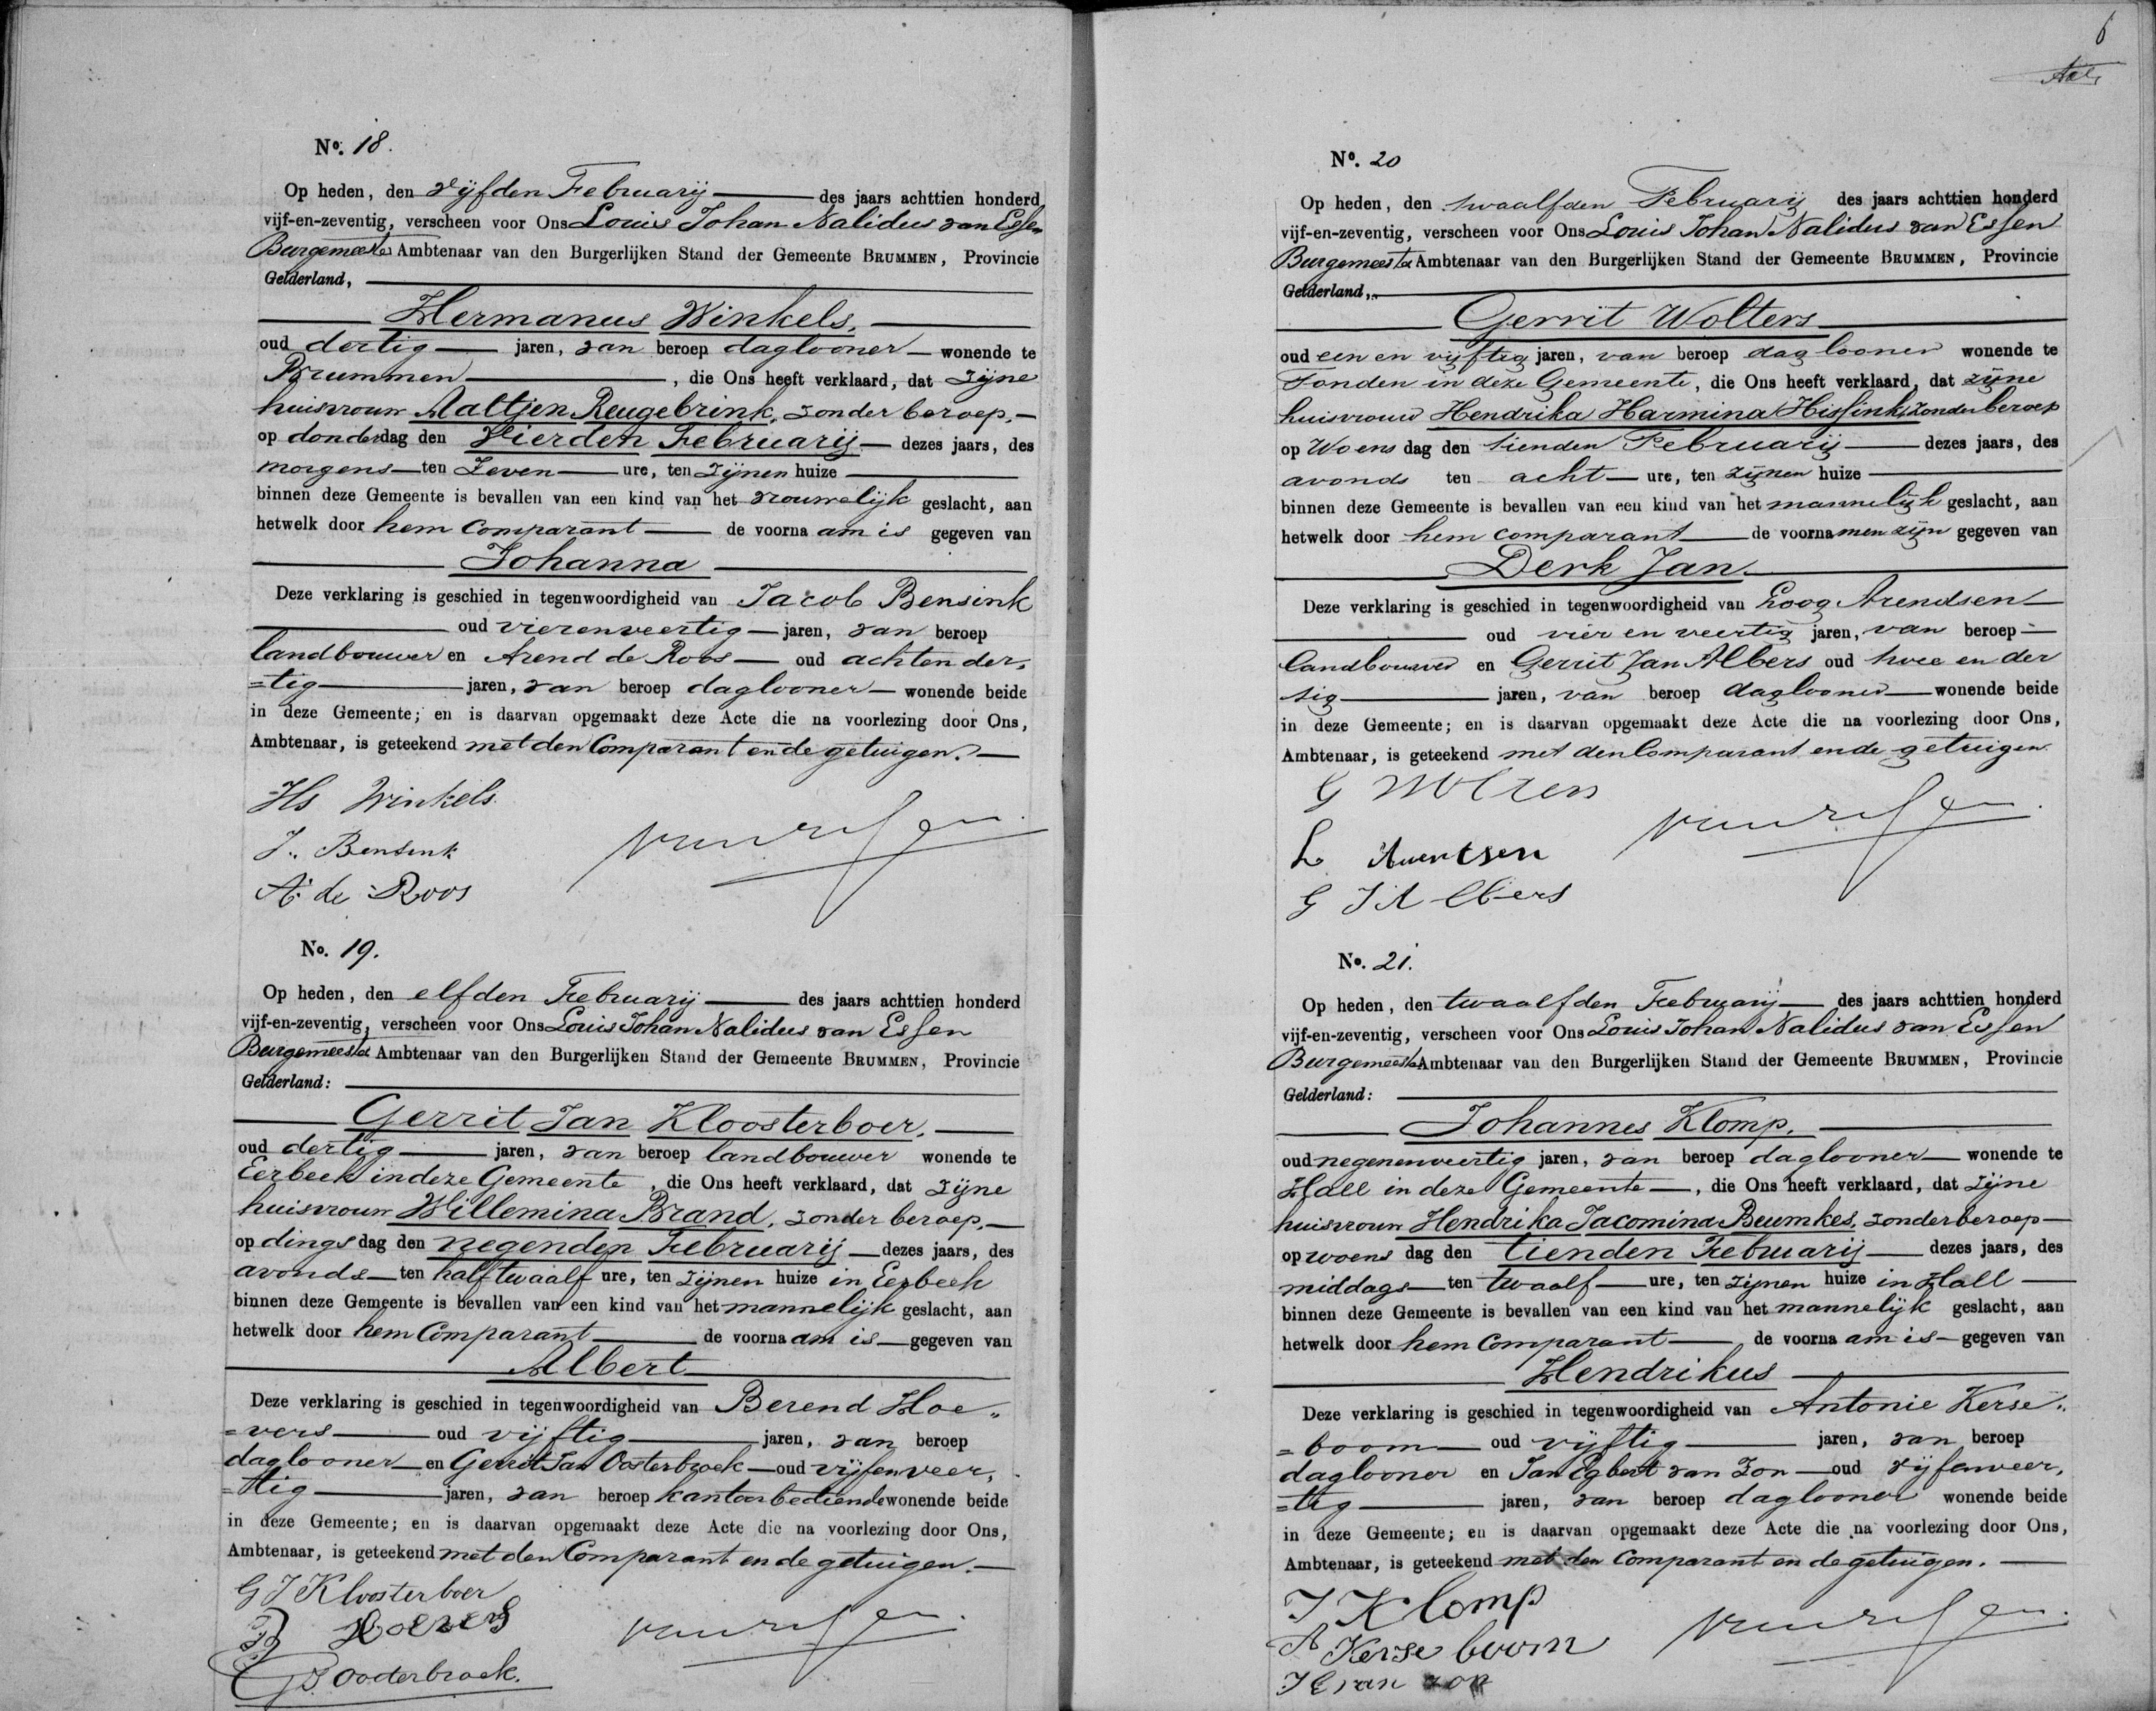 No. 18.
Op heden, den vijfden Februarij des jaars achttien honderd
vijf-en-zeventig, verscheen voor Ons Louis Johan Nalidus van Essen
Burgemeester Ambtenaar van den Burgerlijken Stand der Gemeente BRUMMEN, Provincie
Gelderland,
Hermanus Winkels,
oud dertig jaren, van beroep daglooner wonende te
Brummen, die Ons heeft verklaard, dat Zijne
huisvrouw Aaltjen Reugebrink, zonder beroep,
op donderdag den Vierden Februarij dezes jaars, des
morgens ten Zeven ure, ten Zijnen huize
binnen deze Gemeente is bevallen van een kind van het vrouwelijk geslacht, aan
hetwelk door hem Comparant de voornaam is gegeven van
Johanna
Deze verklaring is geschied in tegenwoordigheid van Jacob Bensink
oud vierenveertig jaren, van beroep
landbouwer en Arend de Roos oud achtender,
=tig jaren, van beroep daglooner wonende beide
in deze Gemeente; en is daarvan opgemaakt deze Acte die na voorlezing door Ons,
Ambtenaar, is geteekend met den Comparant en de getuigen.
Hs Winkels
J. Bensink
A de Roos
van Essen
No. 19.
Op heden, den elfden Februarij des jaars achttien honderd
vijf-en-zeventig, verscheen voor Ons Louis Johan Nalidus van Essen
Burgemeester Ambtenaar van den Burgerlijken Stand der Gemeente BRUMMEN, Provincie
Gelderland:
Gerrit Jan Kloosterboer,
oud dertig jaren, van beroep landbouwer wonende te
Eerbeek in deze Gemeente, die Ons heeft verklaard, dat Zijne
huisvrouw Willemina Brand, zonder beroep,
op dingsdag den negenden Februarij dezes jaars, des
avonds ten half twaalf ure, ten Zijnen huize in Eerbeek
binnen deze Gemeente is bevallen van een kind van het mannelijk geslacht, aan
hetwelk door hem Comparant de voornaam is gegeven van
Albert
Deze verklaring is geschied in tegenwoordigheid van Berend Hoe„
=vers oud vijftig jaren, van beroep
daglooner en Gerrit Jan Oosterbroek oud vijfenveer,
=tig jaren, van beroep kantoorbediende wonende beide
in deze Gemeente; en is daarvan opgemaakt deze Acte die na voorlezing door Ons,
Ambtenaar, is geteekend met den Comparant en de getuigen.
G J Kloosterboer
B Hoevers
G J. Oosterbroek.
van Essen
6
No. 20
Op heden, den twaalfden Februarij des jaars achttien honderd
vijf-en-zeventig, verscheen voor Ons Louis Johan Nalidus van Essen
Burgemeester Ambtenaar van den Burgerlijken Stand der Gemeente BRUMMEN, Provincie
Gelderland,
Gerrit Wolters
oud een en vijftig jaren, van beroep daglooner wonende te
Tonden in deze Gemeente, die Ons heeft verklaard, dat zijne
huisvrouw Hendrika Harmina Hissink, zonder beroep
op Woensdag den tienden Februarij dezes jaars, des
avonds ten acht ure, ten zijnen huize
binnen deze Gemeente is bevallen van een kind van het mannelijk geslacht, aan
hetwelk door hem comparant de voornamen zijn gegeven van
Derk Jan
Deze verklaring is geschied in tegenwoordigheid van Loog Arendsen
oud vier en veertig jaren, van beroep
landbouwer en Gerrit Jan Albers oud twee en der
tig jaren, van beroep daglooner wonende beide
in deze Gemeente; en is daarvan opgemaakt deze Acte die na voorlezing door Ons,
Ambtenaar, is geteekend met den Comparant en de getuigen
G Wolters
L Arentsen
G J Albers
van Essen
No. 21.
Op heden, den twaalfden Februarij des jaars achttien honderd
vijf-en-zeventig, verscheen voor Ons Louis Johan Nalidus van Essen
Burgemeester Ambtenaar van den Burgerlijken Stand der Gemeente BRUMMEN, Provincie
Gelderland:
Johannes Klomp,
oud negenenveertig jaren, van beroep daglooner wonende te
Hall in deze Gemeente, die Ons heeft verklaard, dat Zijne
huisvrouw Hendrika Jacomina Beumkes, zonder beroep
op woensdag den tienden Februarij dezes jaars, des
middags ten twaalf ure, ten zijnen huize in Hall
binnen deze Gemeente is bevallen van een kind van het mannelijk geslacht, aan
hetwelk door hem Comparant de voornaam is gegeven van
Hendrikus
Deze verklaring is geschied in tegenwoordigheid van Antonie Kerse„
=boom oud vijftig jaren, van beroep
daglooner en Jan Egbert van Zon oud vijfenveer,
=tig jaren, van beroep daglooner wonende beide
in deze Gemeente; en is daarvan opgemaakt deze Acte die na voorlezing door Ons,
Ambtenaar, is geteekend met den Comparant en de getuigen.
J Klomp
A Kerseboom
J E van zon
van Essen